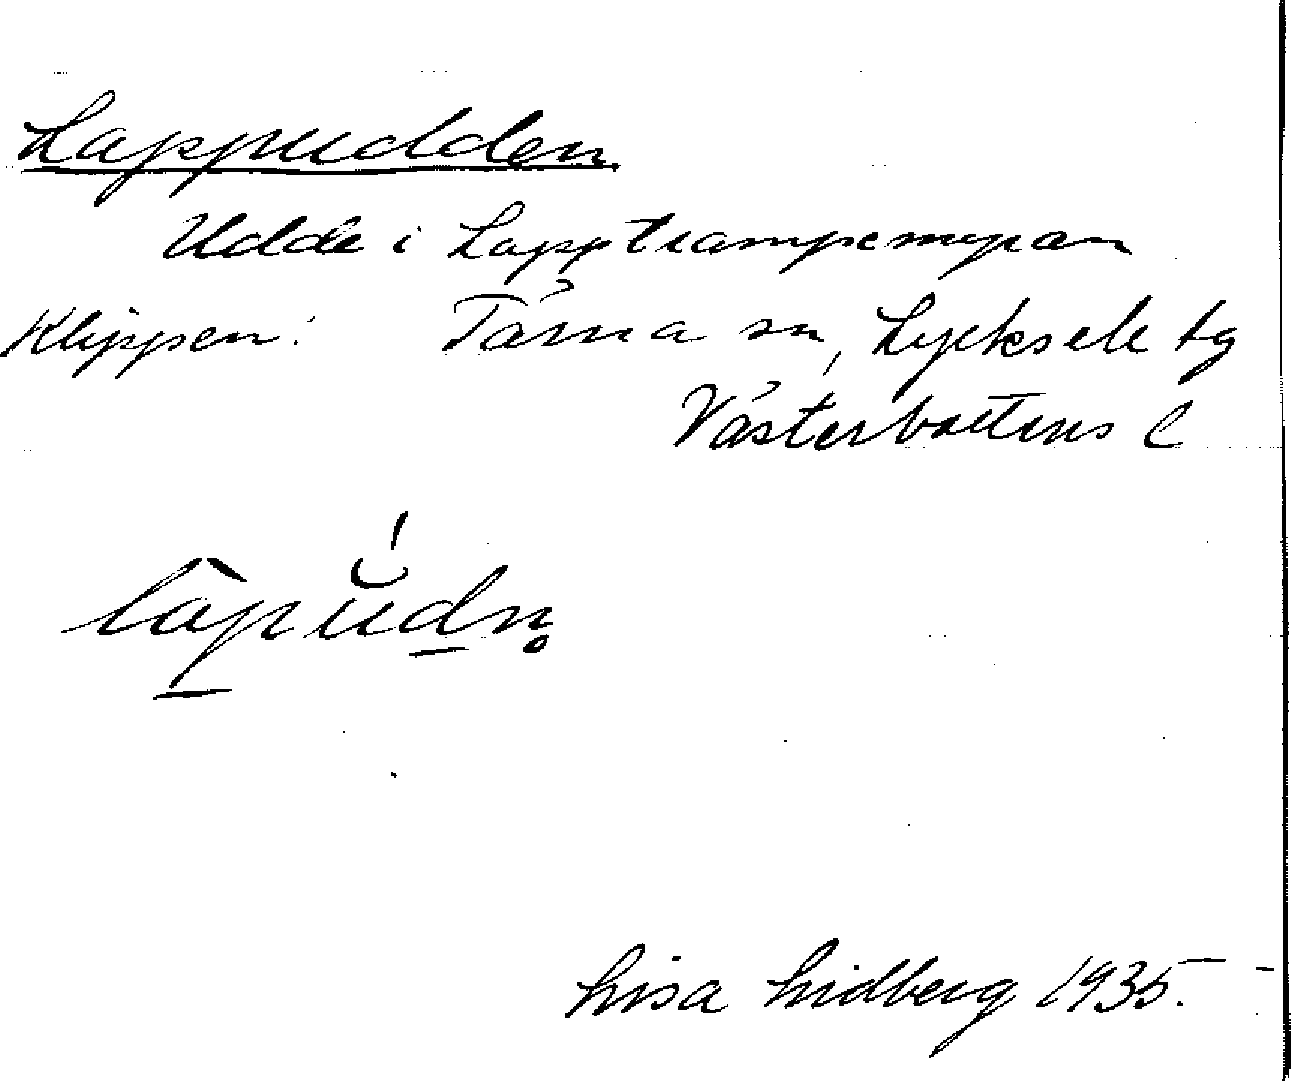 Lappudden
Udde i Lapptrampemyran
Klippen: Tärna sn, Lycksele tg
Västerbottens l
Lisa Lidberg 1935.